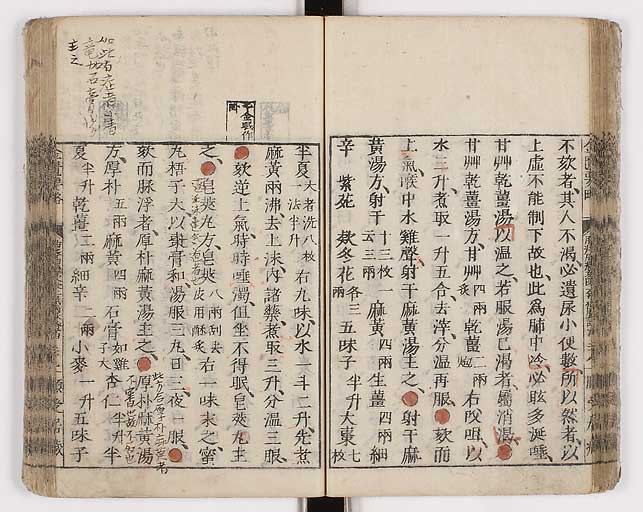 不欬者其人不渴必遺尿小便數所以然者以
上虛不能制下故也此為肺中冷必眩多涎唾
甘艸乾薑湯以溫之若服湯已渴者屬消渴
甘艸乾薑湯方甘艸 四兩炙 乾薑 二兩炮 右㕮咀以
水三升煮取一升五合去滓分溫再服 欬而
上氣喉中水雞聲射干麻黃湯主之 射干麻
黃湯方射干 十三枚一云三兩 麻黃 四兩 生薑 四兩 細
辛 紫菀 欬冬花 各三兩 五味子 半升 大棗 七枚
半夏 大者洗八枚一法半升 右九味以水一斗二升先煮
麻黃兩沸去上沫內諸藥煮取三升分溫三服
欬逆上氣時時唾濁但坐不得眠皂莢丸主
之 皂莢丸方皂莢 八兩刮去皮用酥炙 右一味末之蜜
丸梧子大以棗膏和湯服三丸日三夜一服
欬而脈浮者厚朴麻黃湯主之 厚朴麻黃湯
方厚朴 五兩 麻黃 四兩 石膏 如雞子大 杏仁 半升 半
夏 半升 乾薑 二兩 細辛 二兩 小麥 一升 五味子
千金作
主之
金匱要略